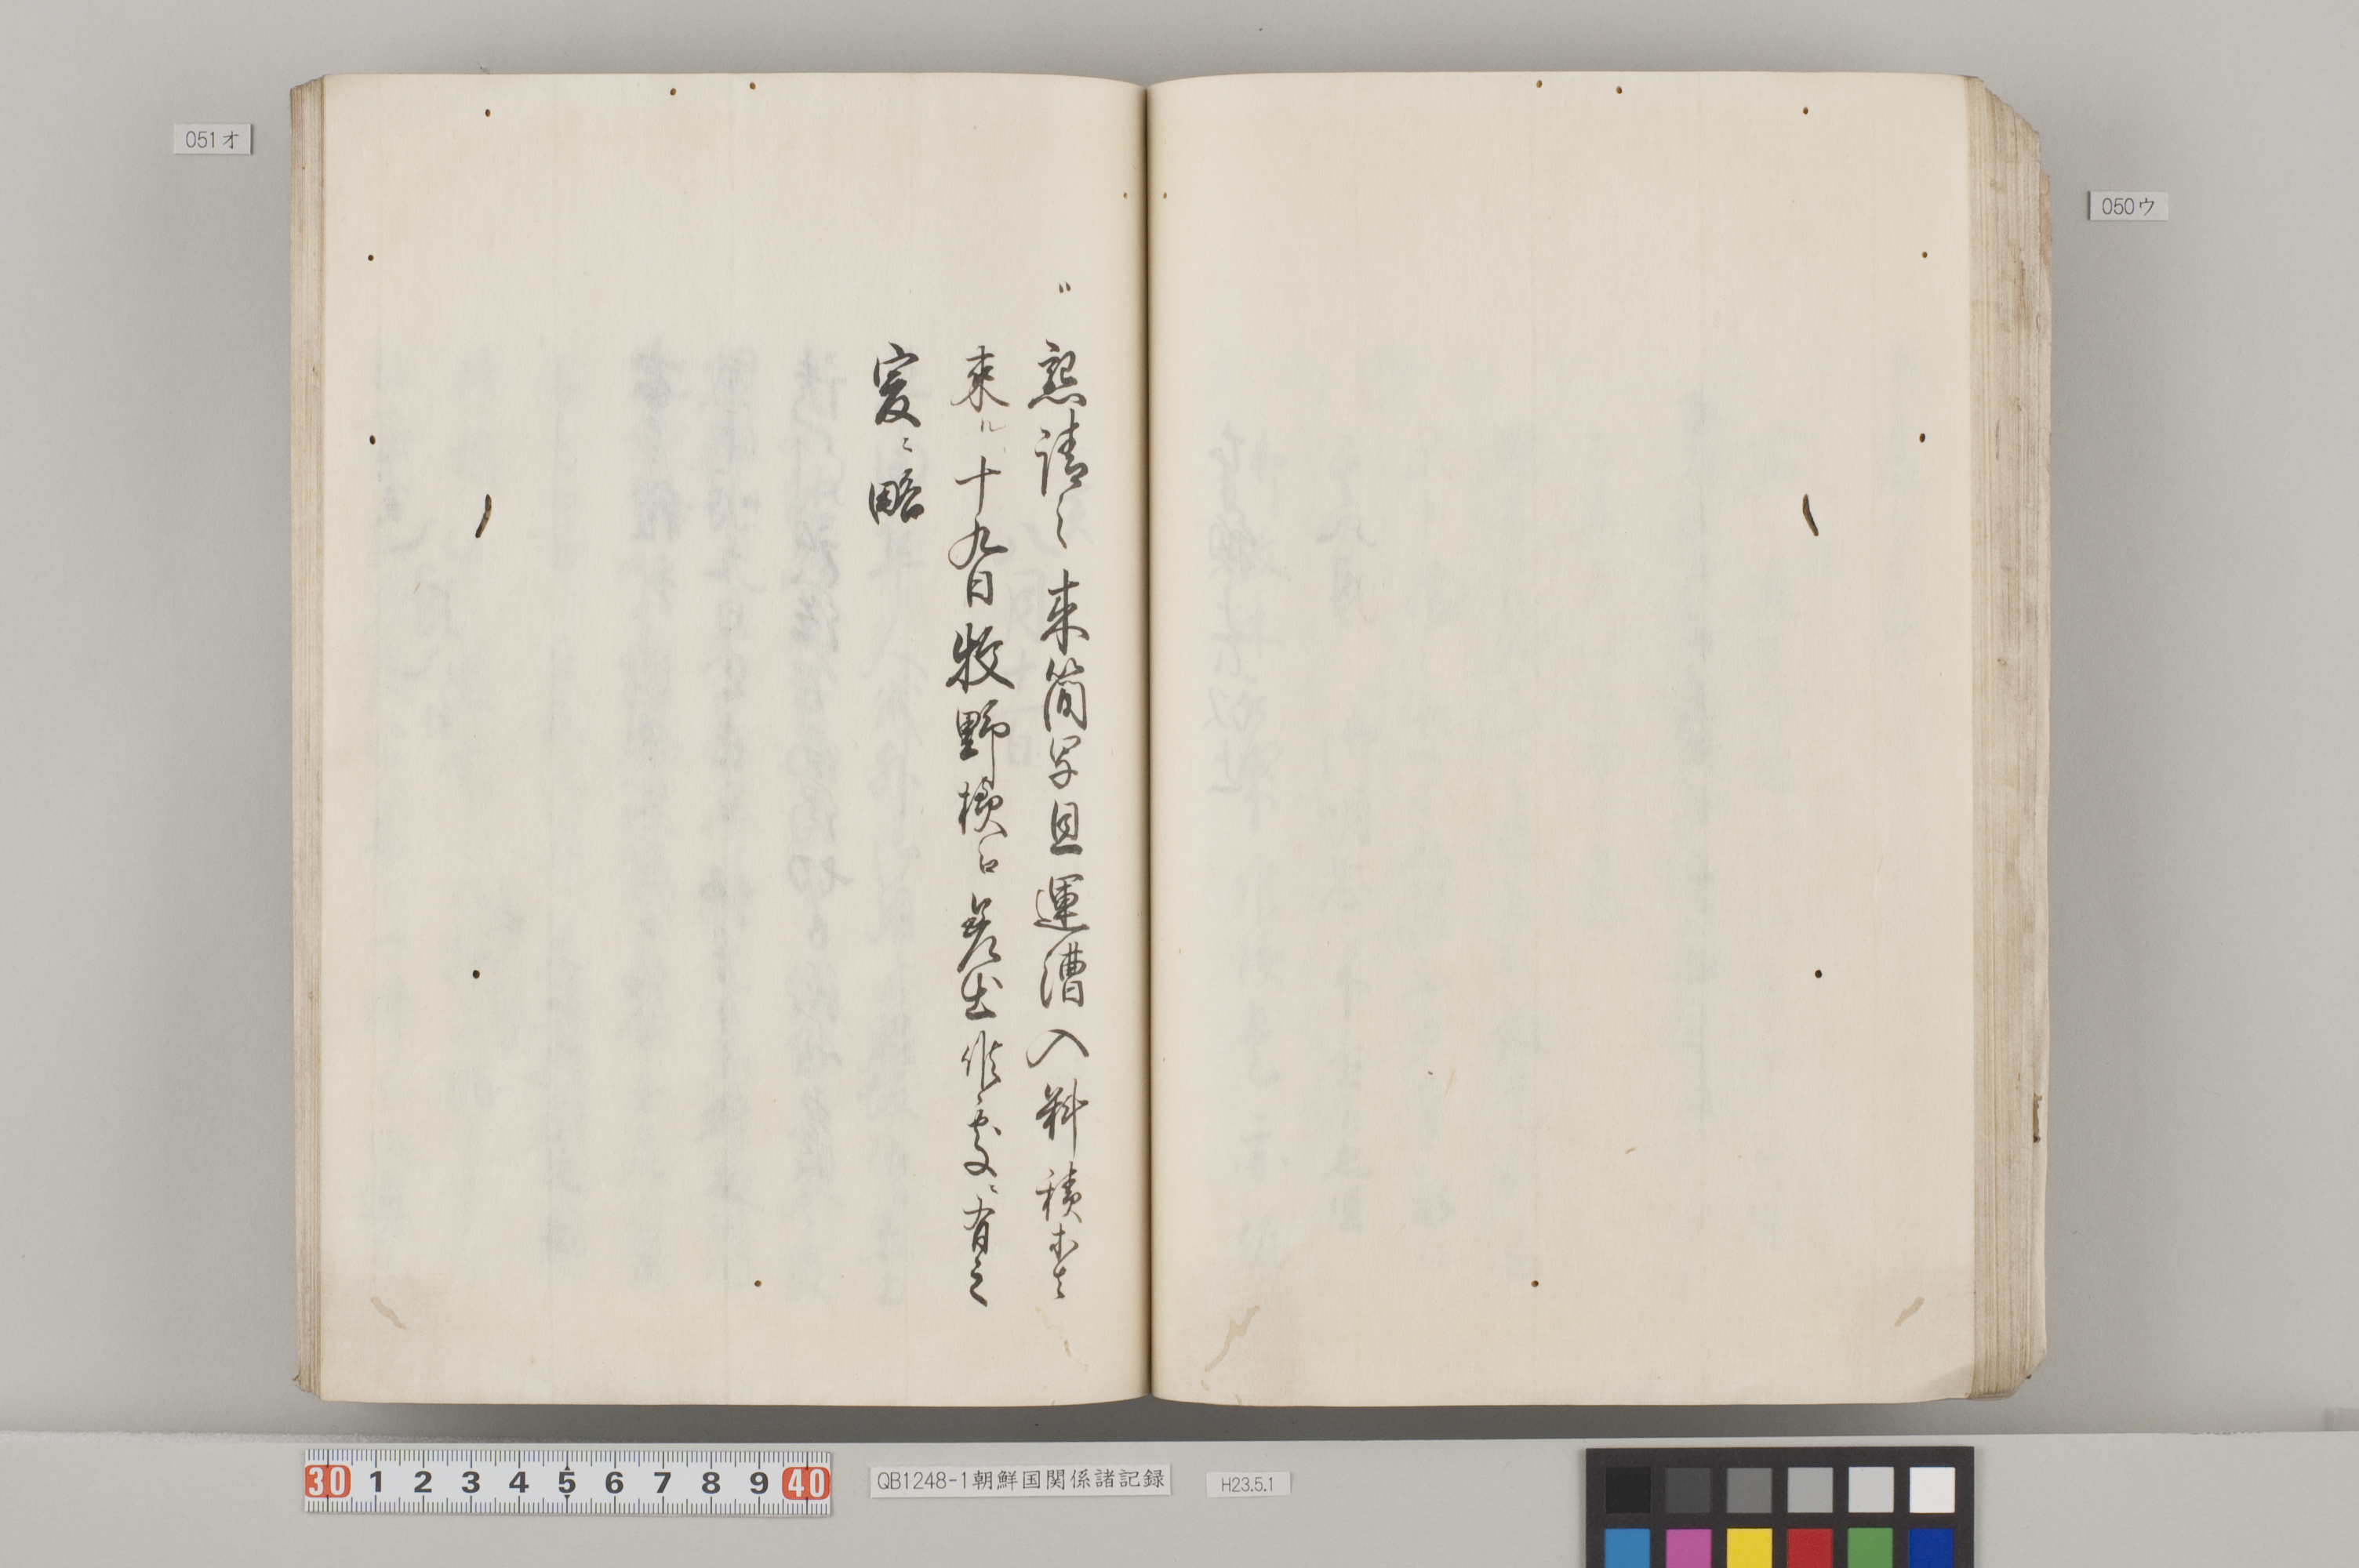 050ウ
051オ
〃懇請之来簡写且運漕入料積等者
来ル十九日牧野様江差出候処ニ有之
爰ニ略
30 1 2 3 4 5 6 7 8 9 40
QB1248-1朝鮮国関係諸記録
H23.5.1